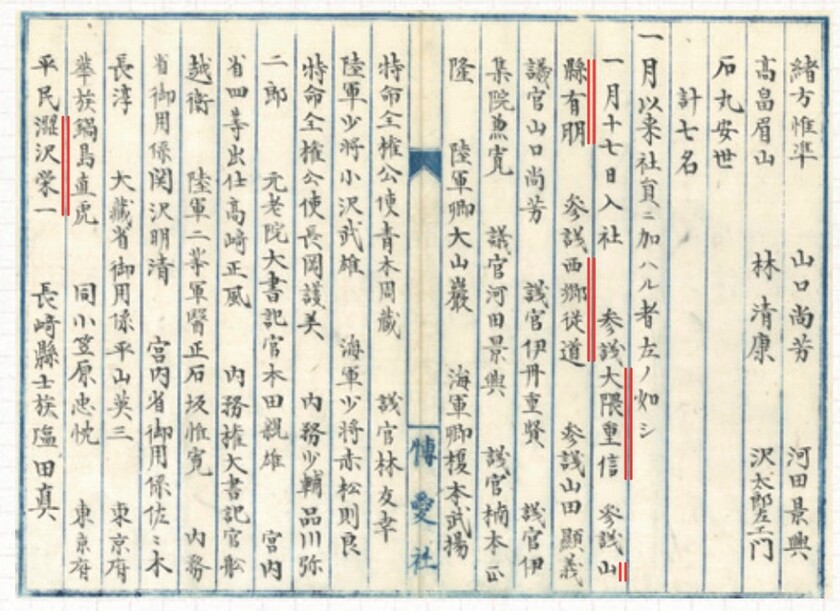 緒方惟準　山口尚芳　河田景與
高畠眉山　林清康　沢太郎左エ門
石丸安世
計七名
一月以来社員ニ加ハル者左ノ如シ
一月十七日入社　参議大隈重信　参議山
縣有朋　参議西郷従道　参議山田顕義
議官山口尚芳　議官伊丹重賢　議官伊
集院兼寛　議官河田景與　議官楠本正
隆　陸軍卿大山巌　海軍卿榎本武揚
博愛社
特命全権公使青木周蔵　議官林友幸
陸軍少将小沢武雄　海軍少将赤松則良
特命全権公使長岡護美　内務少輔品川弥
二郎　元老院大書記官本田親雄　宮内
省四等出仕高崎正風　内務権大書記官舩
越衛　陸軍二等軍醫正石坂惟寛　内務
省御用係関沢明清　宮内省御用係佐々木
長淳　大蔵省御用係平山英三　東京府
華族鍋島直虎　同小笠原忠忱　東京府
平民澀沢栄一　長崎縣士族塩田真